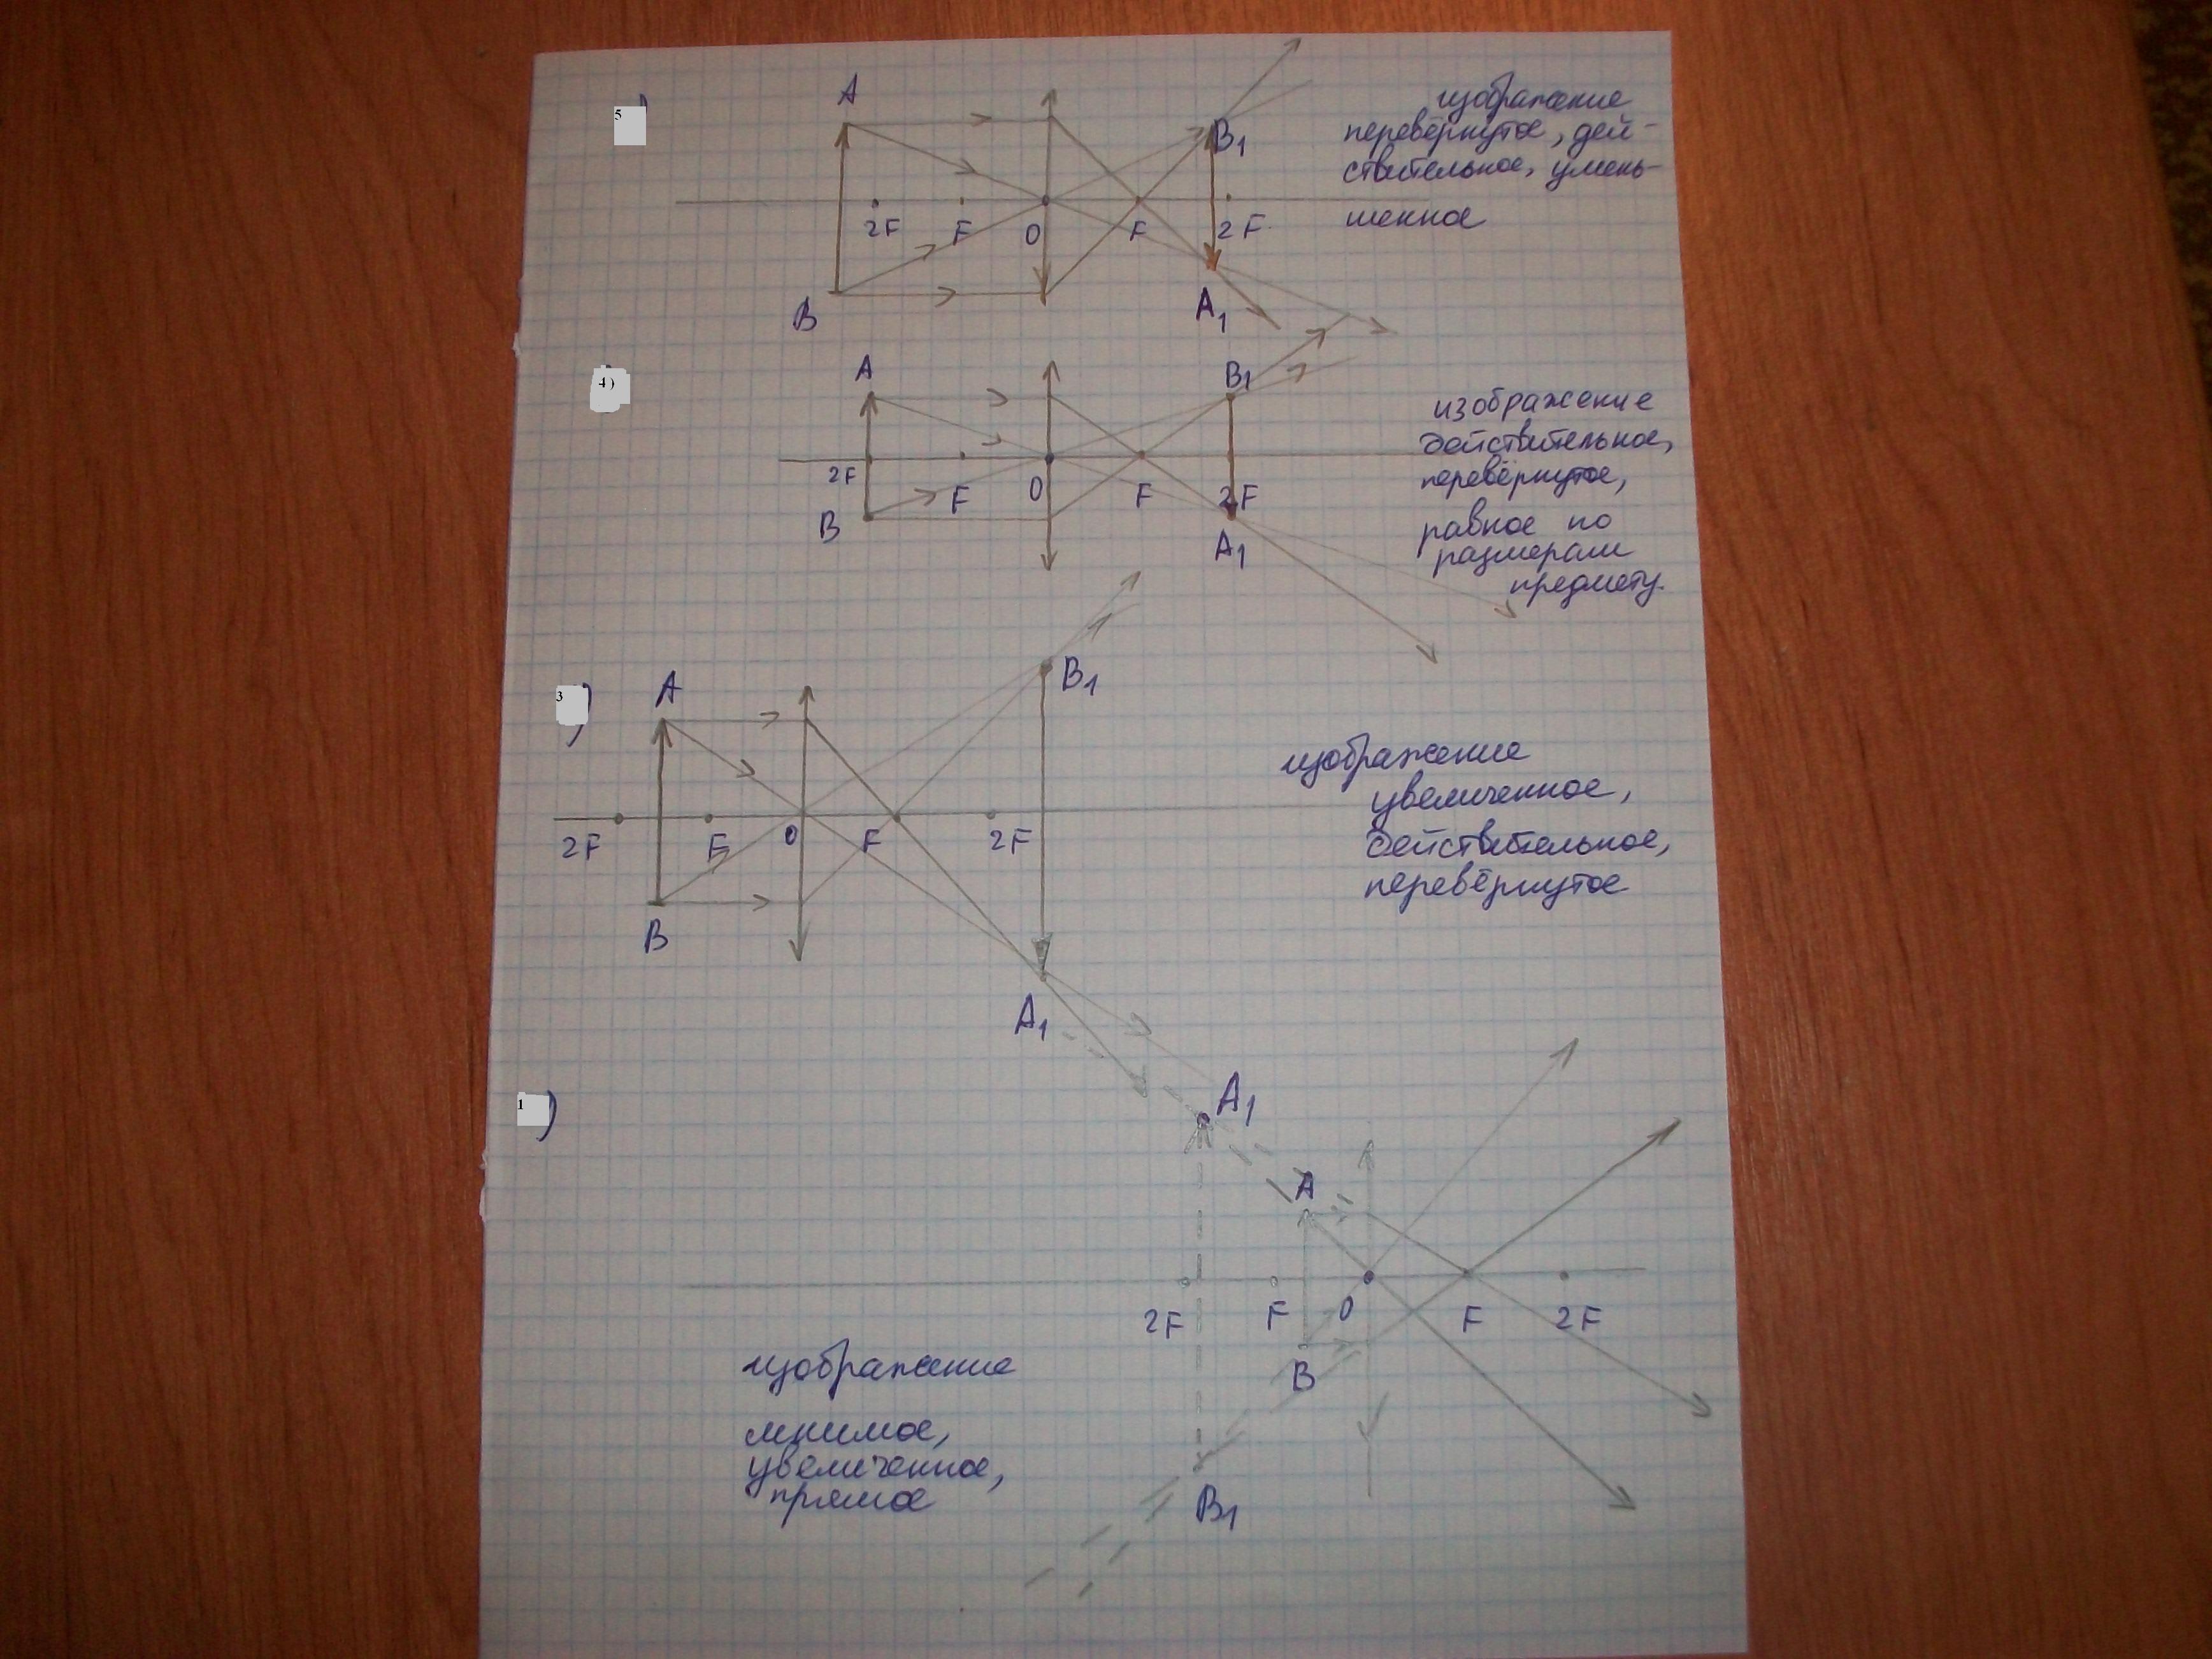 5 )
A
B1
изображение
перевёрнутое, дей-
ствительное, умень-
шенное
2F F O F 2F
B
A1
4)
A
B1
изображение
действительное,
перевёрнутое,
равное по
размерам
предмету.
2F F O F 2F
B
A1
3 )
A
B1
изображение
увеличенное,
действительное,
перевёрнутое
2F F O F 2F
B
A1
1 )
A1
A
2F F O F 2F
B
B1
изображение
мнимое,
увеличенное,
прямое